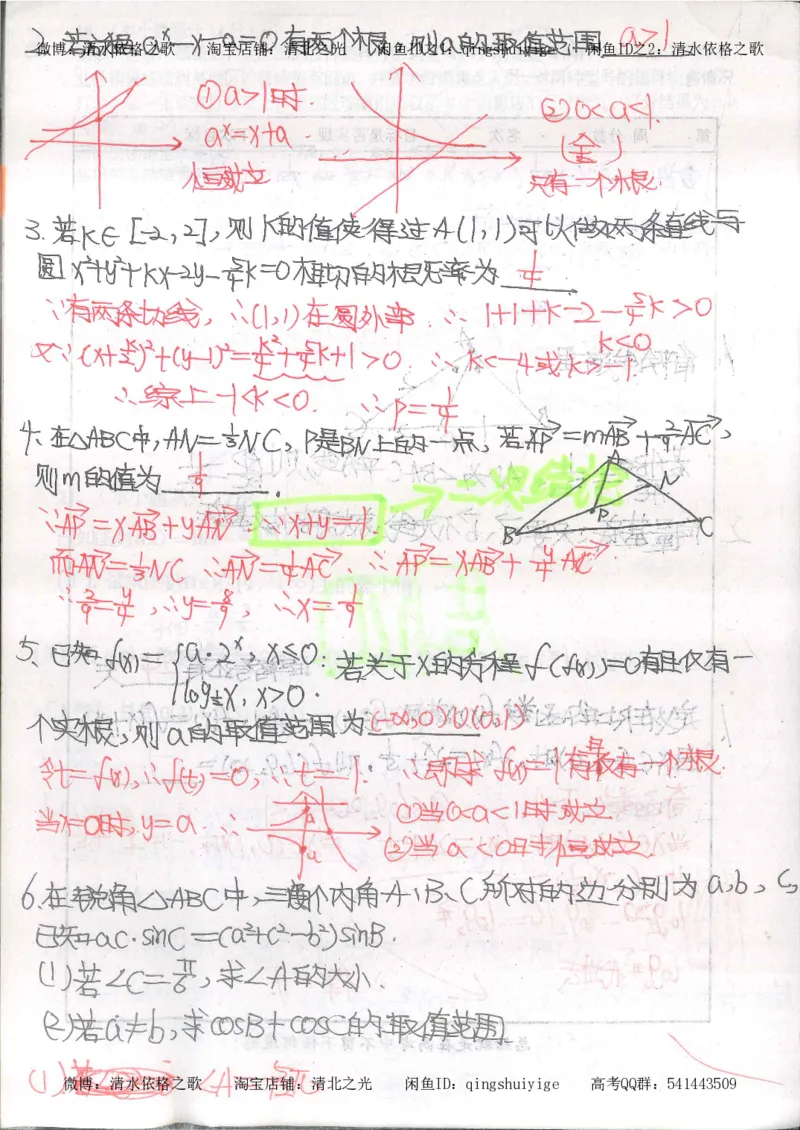 2. 若方程 a^x-x-a=0有两个根, 则a的取值范围 a>1
微博：清水依格之歌 淘宝店铺：清北之光 闲鱼ID之1：qingshuiyige 闲鱼ID之2：清水依格之歌
①a>1时 ②0<a<1.
a^x=x+a (舍)
恒成立 只有一个根.
3. 若k∈[-2,2], 则k的值使得过A(1,1)可以做两条直线与
圆x²+y²+kx-2y-5/4k=0相切的概率为 1/4
∵有两条切线, ∴(1,1)在圆外 ∴1+1+k-2-5/4k>0
k<0
又∵(x+k/2)²+(y-1)²=k²/4+5/4k+1>0 ∴k<-4或k>-1
∴综上-1<k<0. ∴P=1/4
4. 在△ABC中, AN=1/3NC, P是BN上的一点, 若AP=mAB+2/9AC,
则m的值为 1/9.
A N P B C
∵AP=xAB+yAN ∴x+y=1 →二次结论
而AN=1/3NC ∴AN=1/4AC ∴AP=xAB+y/4AC
∵2/9=y/4, ∴y=8/9, ∴x=1/9
5. 已知f(x)={a·2^x, x≤0. 若关于x的方程f(f(x))=0有且仅有一
log_{1/2}x, x>0.
个实根, 则a的取值范围为(-∞,0)∪(0,1)
令t=f(x), ∴f(t)=0, ∴t=1. ∴即求f(x)=1有且仅有一个根.
当x=0时, y=a ∴ ①当0<a<1时成立.
a a ②当a<0时恒成立.
6. 在锐角△ABC中, 三个内角A、B、C所对的边分别为a,b,c,
已知ac·sinC=(a²+c²-b²)sinB.
(1)若∠C=π/6, 求∠A的大小.
(2)若a≠b, 求cosB+cosC的取值范围
(1) ∠A=
微博：清水依格之歌 淘宝店铺：清北之光 闲鱼ID：qingshuiyige 高考QQ群：541443509